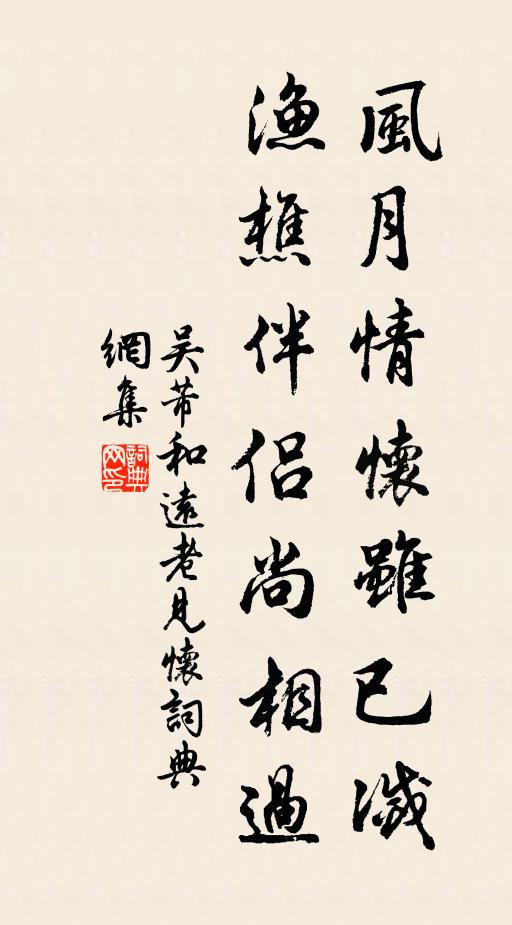 風月情懷雖已減
漁樵伴侶尚相過
吴芾和遠老見懷詞典
網集
詞典网印